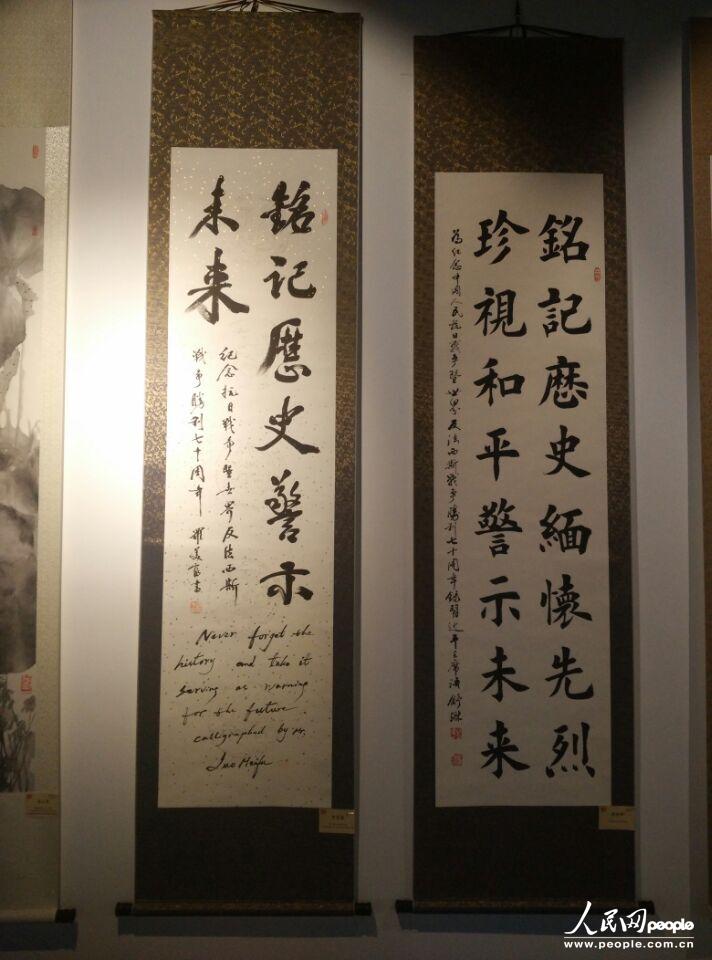 銘记歷史警示
未来
纪念抗日戰争暨世界反法西斯
戰争勝利七十周年 羅美富書
Never forget the
history and take it
serving as warning
for the future
calligraphed by Mr.
Luo Meifu
銘記歷史緬懷先烈
珍視和平警示未来
為纪念中国人民抗日戰争暨世界反法西斯戰争勝利七十周年録習近平主席语 舒琳
人民网 people
www.people.com.cn